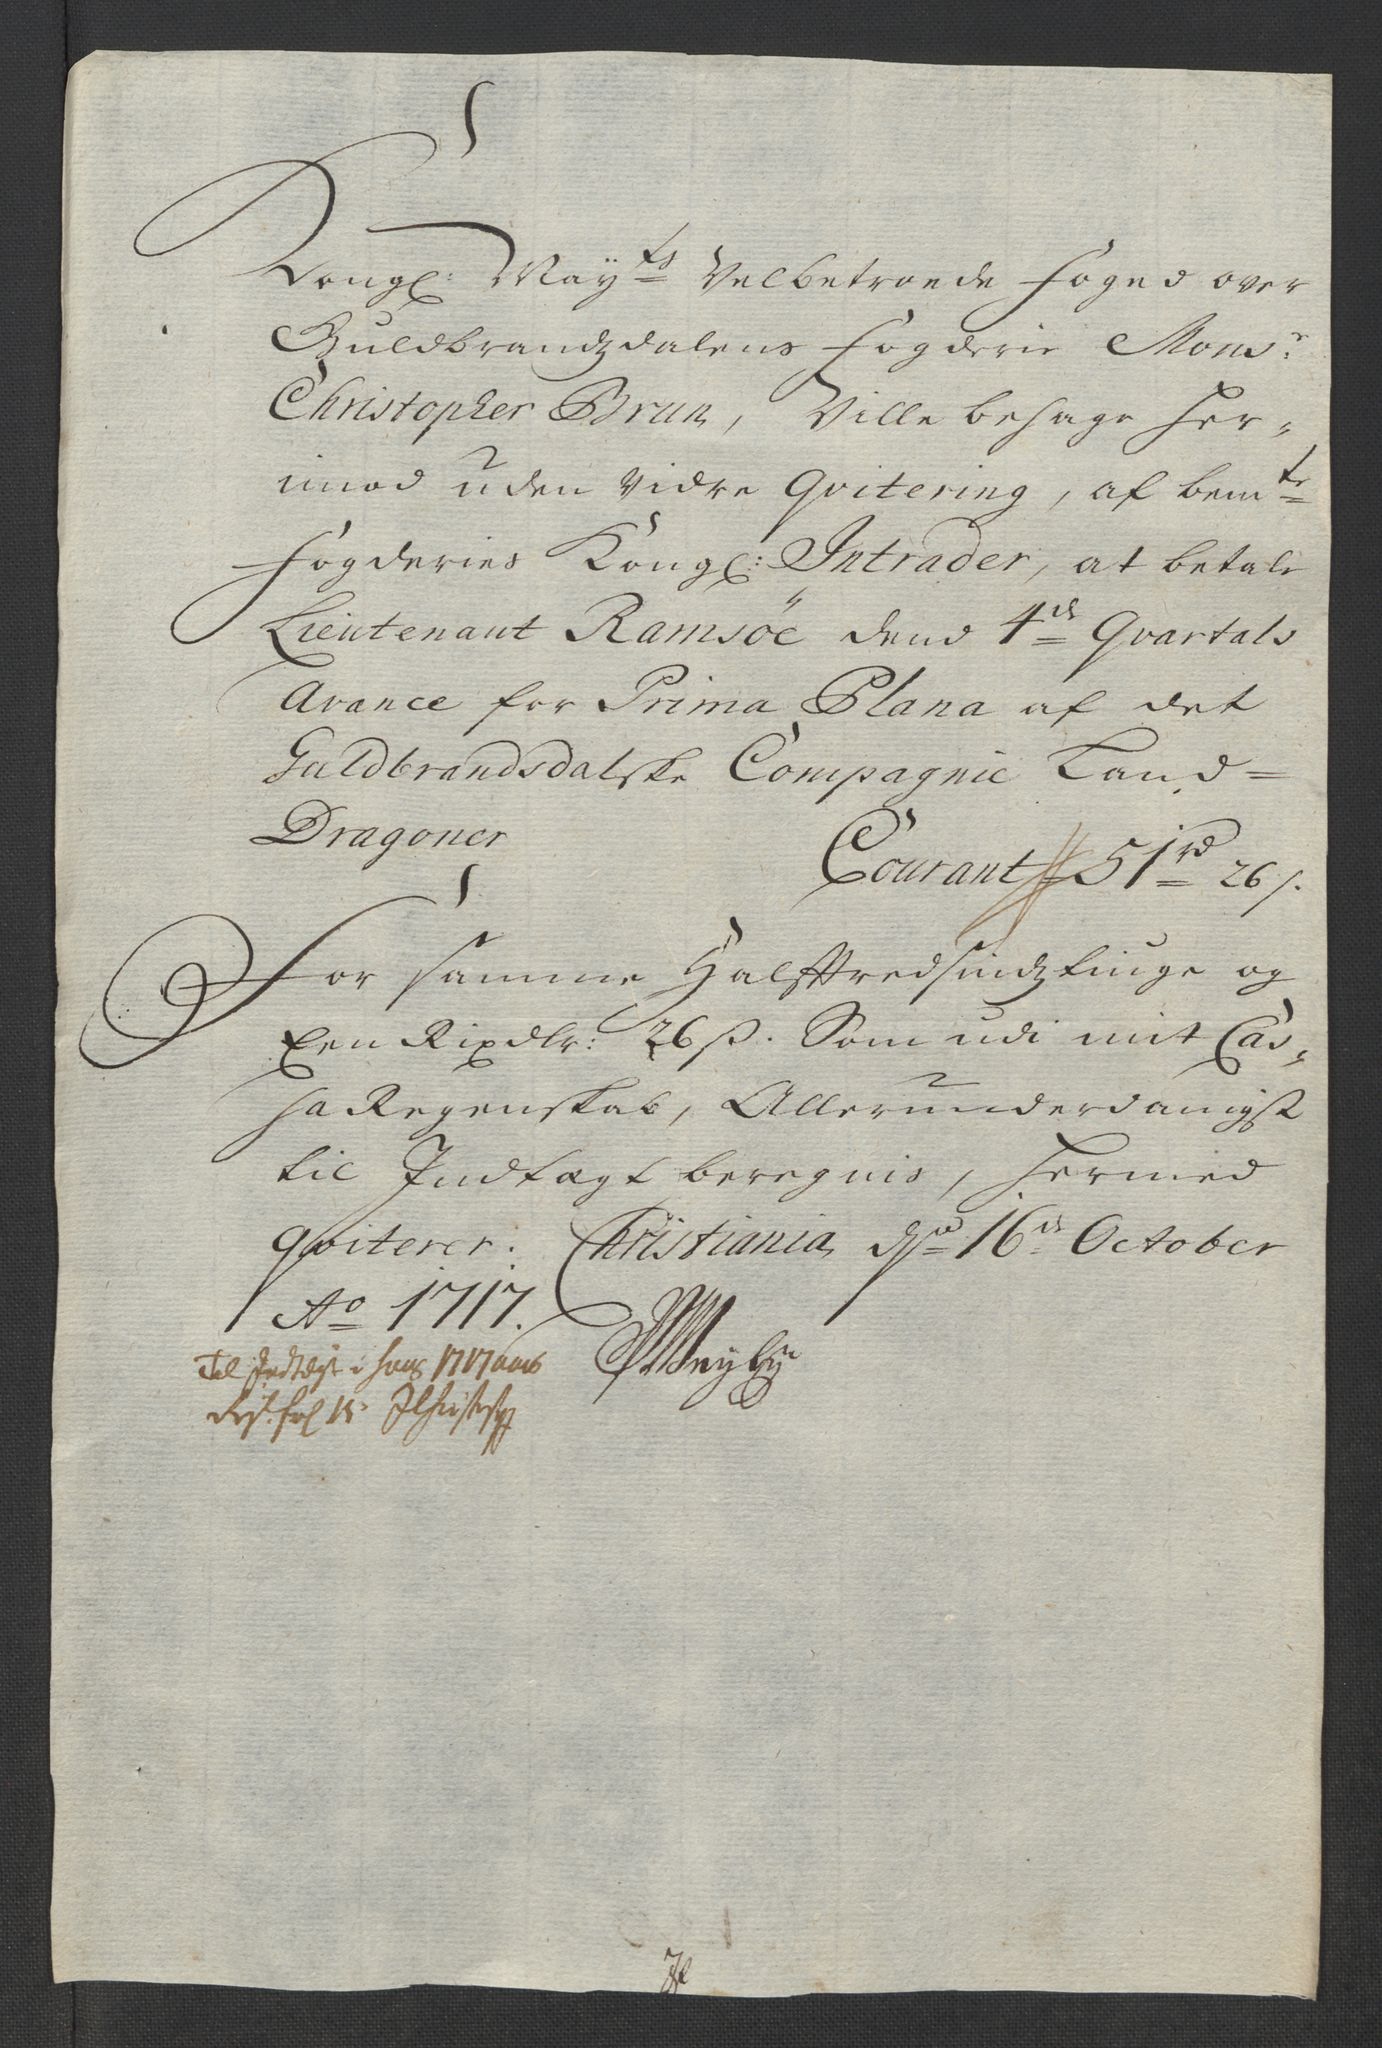 Kongl: May^ts Velbetroede Foged over
Guldbrandzdalens Fogderie Mons^r:
Christopher Brun, Ville behage her-
imod uden vidre Qvitering, af bem^te
Fogderies Kongl: Intrader, at betale
Lieutenant Ramsöe dend 4^de Qvartals
Avance for Prima Plana af det
Guldbrandsdalske Compagnie Land=
Dragoner
Courant 51 rd 26 s.
For samme Halfftredsindztiuge og
Een Rixdlr: 26 s. Som udi mit Cas-
sa Regenskab, Allerunderdanigst
til Indtægt beregnis, hermed
qviterer. Christiania d 16^de October
Ao 1717.
Til Indtægt i hans 1717 aars